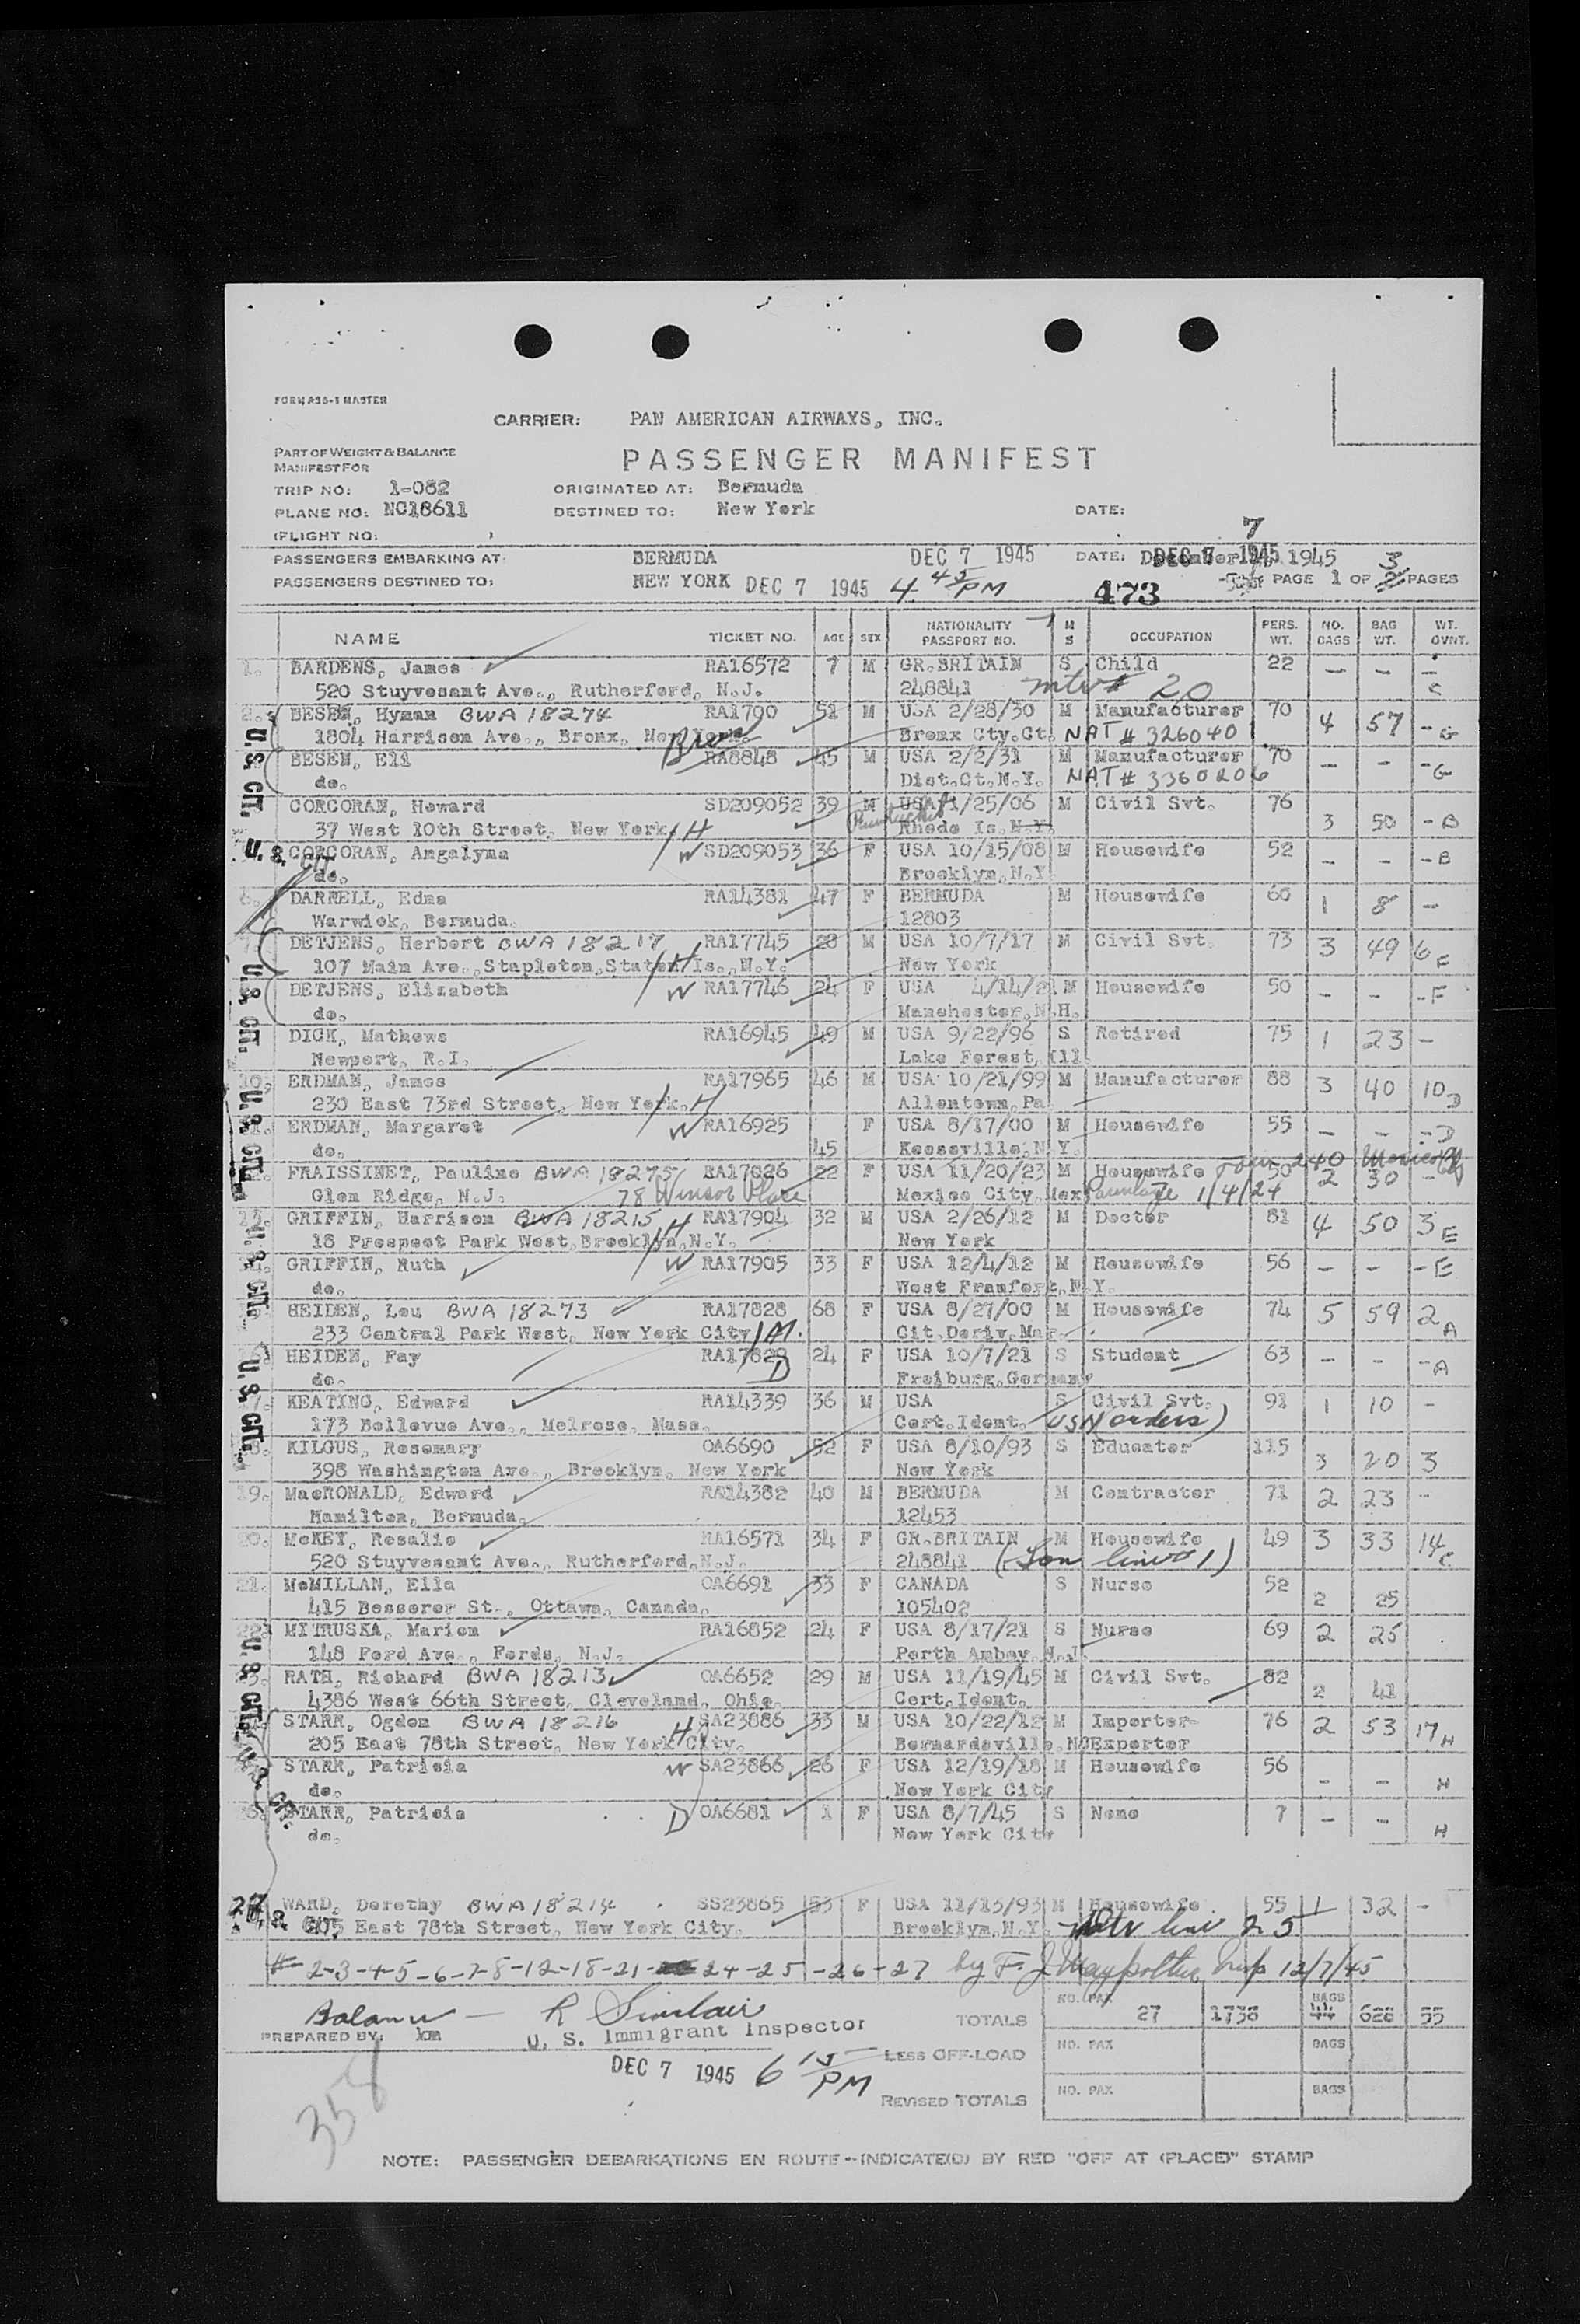 FORM A38-1 MASTER
CARRIER: PAN AMERICAN AIRWAYS, INC.
PART OF WEIGHT & BALANCE
MANIFEST FOR
PASSENGER MANIFEST
TRIP NO: 1-082 ORIGINATED AT: Bermuda
PLANE NO: NC18611 DESTINED TO: New York DATE:
(FLIGHT NO: )
7
PASSENGERS EMBARKING AT: BERMUDA DEC 7 1945 DATE: DEC 7 1945 1945
PASSENGERS DESTINED TO: NEW YORK DEC 7 1945 4 45 PM 473 PAGE 1 OF 3 PAGES
NAME TICKET NO. AGE SEX NATIONALITY PASSPORT NO. M S OCCUPATION PERS. WT. NO. BAGS BAG WT. WT. OVNT.
1. BARDENS, James RA16572 7 M GR.BRITAIN S Child 22 - - -
520 Stuyvesant Ave., Rutherford, N.J. 248841 mtr # 20 C
2. BESEN, Hyman BWA 18274 RA1790 51 M USA 2/28/30 M Manufacturer 70 4 57 - G
1804 Harrison Ave., Bronx, New York. Bro Bronx Cty.Ct. NAT # 326040
BESEN, Eli RA8848 45 M USA 2/2/31 M Manufacturer 70 - - - G
do. Dist.Ct.N.Y. NAT # 3360206
CORCORAN, Howard SD209052 39 M USA 1/25/06 M Civil Svt. 76 3 50 - B
37 West 10th Street, New York. H Rhode Is. N.Y.
CORCORAN, Angalyna W SD209053 36 F USA 10/15/08 M Housewife 52 - - - B
do. Brooklyn, N.Y.
6. DARRELL, Edna RA14381 47 F BERMUDA M Housewife 60 1 8 -
Warwick, Bermuda. 12803
7. DETJENS, Herbert BWA 18217 RA17745 28 M USA 10/7/17 M Civil Svt. 73 3 49 6 F
107 Main Ave., Stapleton, Staten Is., N.Y. H New York
DETJENS, Elizabeth W RA17746 24 F USA 4/14/21 M Housewife 50 - - - F
do. Manchester, N.H.
DICK, Mathews RA16945 49 M USA 9/22/96 S Retired 75 1 23 -
Newport, R.I. Lake Forest, Ill.
10. ERDMAN, James RA17965 46 M USA 10/21/99 M Manufacturer 88 3 40 10 D
230 East 73rd Street, New York. H Allentown, Pa
ERDMAN, Margaret W RA16925 F USA 8/17/00 M Housewife 55 - - - D
do. 45 Keeseville, N.Y.
FRAISSINET, Pauline BWA 18275 RA17026 22 F USA 11/20/23 M Housewife 50 2 30 - Form 240 Mexico
Glen Ridge, N.J. 78 Winsor Place Mexico City, Mex 1/4/24
13. GRIFFIN, Harrison BWA 18215 RA17904 32 M USA 2/26/12 M Doctor 81 4 50 3 E
18 Prospect Park West, Brooklyn, N.Y. H New York
GRIFFIN, Ruth W RA17905 33 F USA 12/4/12 M Housewife 56 - - - E
do. West Franfort, N.Y.
HEIDEN, Lou BWA 18273 RA17828 68 F USA 8/27/00 M Housewife 74 5 59 2 A
233 Central Park West, New York City M. Cit.Deriv.Mar.
HEIDEN, Fay RA17829 24 F USA 10/7/21 S Student 63 - - - A
do. D Freiburg, Germany
KEATING, Edward RA14339 36 M USA S Civil Svt. 91 1 10 -
173 Bellevue Ave., Melrose, Mass. Cert.Ident. (USN orders)
KILGUS, Rosemary OA6690 52 F USA 8/10/93 S Educator 115 3 20 3
398 Washington Ave., Brooklyn, New York New York
19. MacRONALD, Edward RA14382 40 M BERMUDA M Contractor 71 2 23 -
Hamilton, Bermuda. 12453
20. McKEY, Rosalie RA16571 34 F GR.BRITAIN M Housewife 49 3 33 14 C
520 Stuyvesant Ave., Rutherford, N.J. 248841 (Son line 1)
21. McMILLAN, Ella OA6691 33 F CANADA S Nurse 52 2 25
415 Besserer St., Ottawa, Canada. 105402
22. MITRUSKA, Marion RA16852 24 F USA 8/17/21 S Nurse 69 2 25
148 Ford Ave., Fords, N.J. Perth Amboy, N.J.
23. RATH, Richard BWA 18213 OA6652 29 M USA 11/19/45 M Civil Svt. 82 2 41
4386 West 66th Street, Cleveland, Ohio. Cert.Ident.
STARR, Ogden BWA 18216 SA23886 33 M USA 10/22/12 M Importer- 76 2 53 17 H
205 East 78th Street, New York City. H Bernardsville, NJ Exporter
STARR, Patricia W SA23866 26 F USA 12/19/18 M Housewife 56 - - H
do. New York City
STARR, Patricia D OA6681 1 F USA 8/7/45 S None 7 - - H
do. New York City
27 WARD, Dorothy BWA 18214 SS23865 53 F USA 11/13/93 M Housewife 55 1 32 -
205 East 78th Street, New York City. Brooklyn, N.Y. line 25
U.S. CIT.
U.S. CIT.
U.S. CIT.
U.S. CIT.
U.S. CIT.
U.S. CIT.
U.S. CIT.
# 2-3-4-5-6-7-8-12-18-21- 24-25-26-27 by F. J. Insp 12/7/45
Balance - R Sinclair
PREPARED BY: km U. S. Immigrant Inspector
TOTALS NO. PAX 27 1738 BAGS 44 628 55
DEC 7 1945 6 15 PM
LESS OFF-LOAD NO. PAX BAGS
REVISED TOTALS NO. PAX BAGS
358
NOTE: PASSENGER DEBARKATIONS EN ROUTE--INDICATE(D) BY RED "OFF AT (PLACE)" STAMP